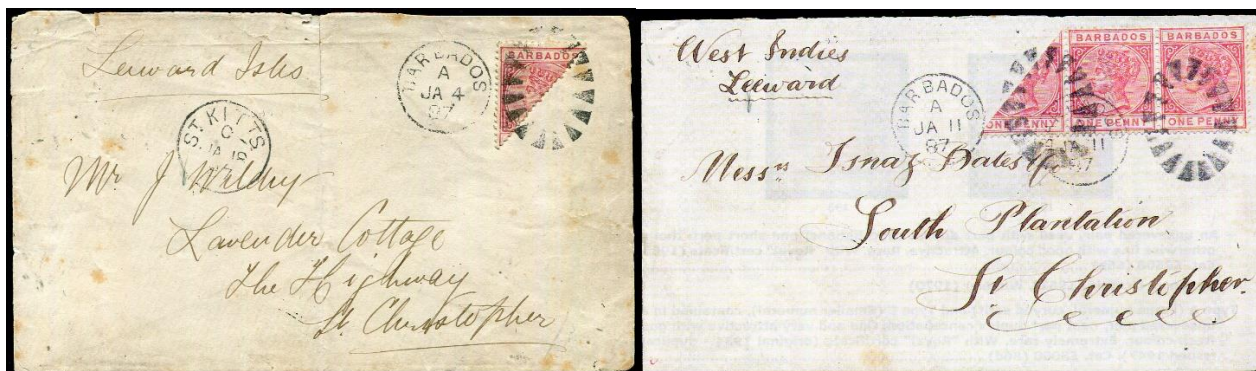 Leeward Isles
BARBADOS
A
JA 4
87
BARBADOS
ST. KITTS
C
JA
Mr J
Lavender Cottage
The Highway
St. Christopher
West Indies
Leeward
BARBADOS
A
JA 11
87
BARBADOS
BARBADOS
ONE PENNY
ONE PENNY
ONE PENNY
JA 11
87
Messrs
South Plantation
St Christopher